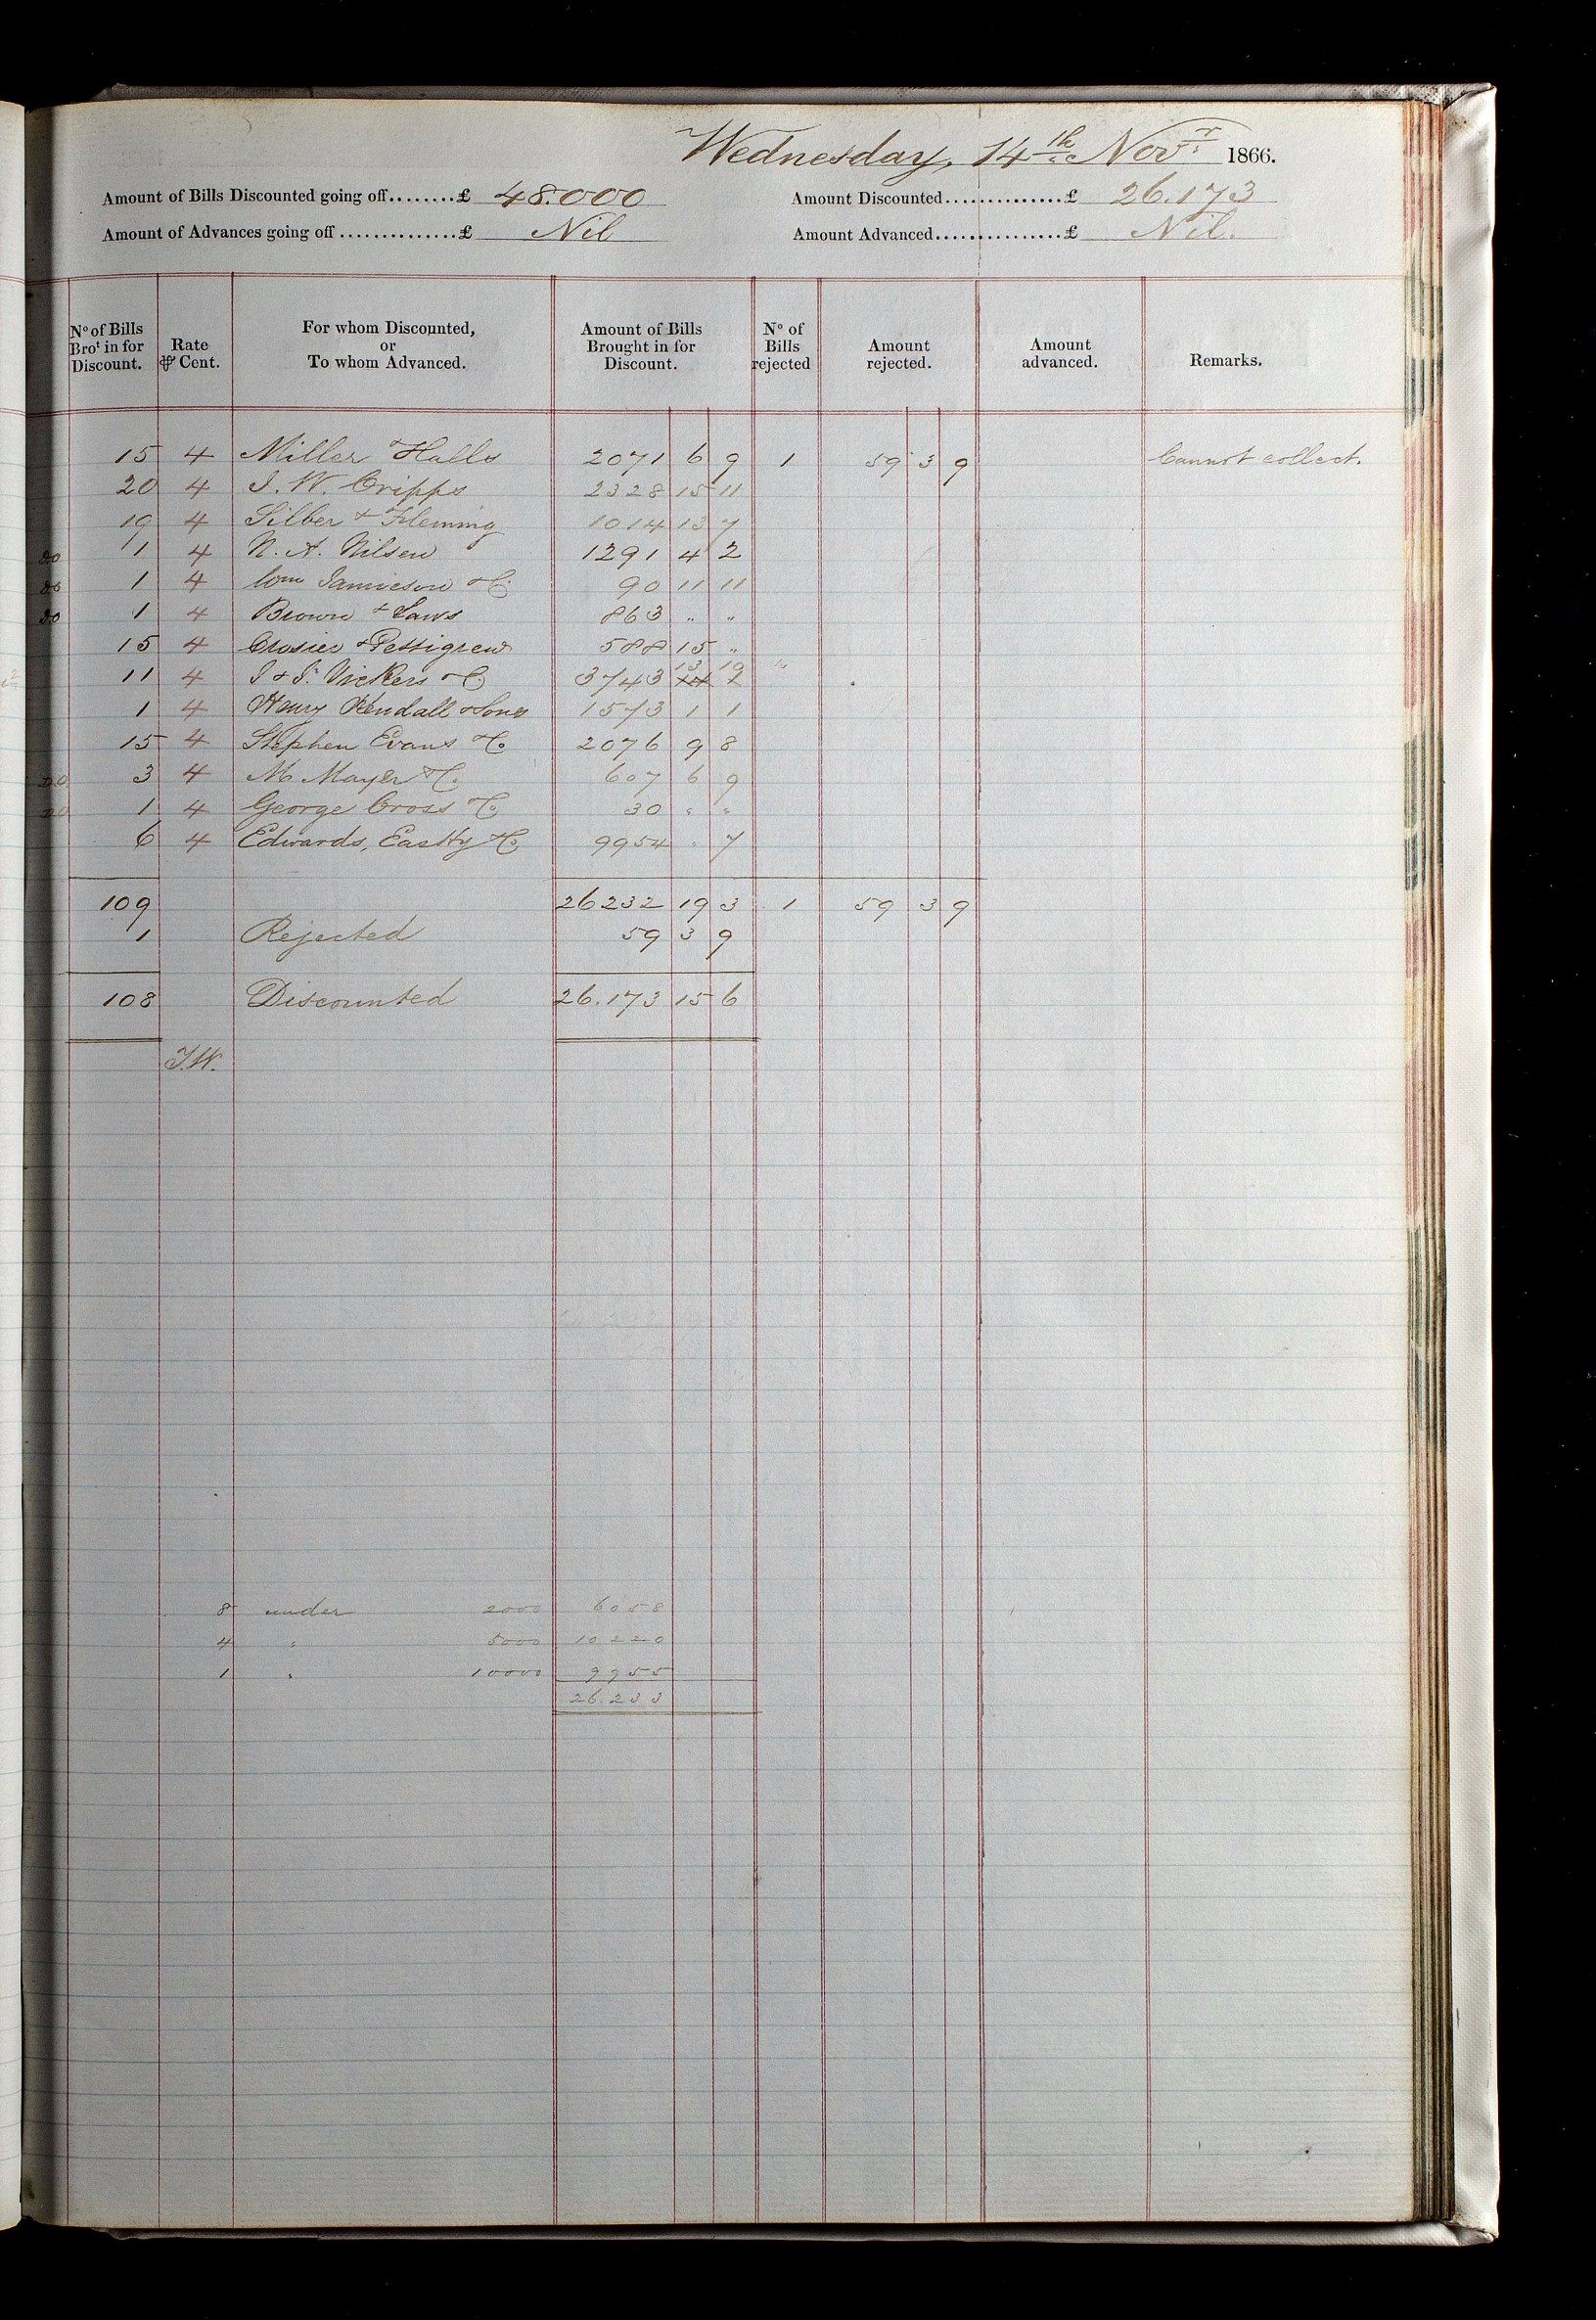 Wednesday, 14th Novr 1866.
Amount of Bills Discounted going off........£ 48.000 Amount Discounted..............£ 26.173
Amount of Advances going off..............£ Nil Amount Advanced................£ Nil.
No of Bills Brot in for Discount. Rate ⅌ Cent. For whom Discounted, or To whom Advanced. Amount of Bills Brought in for Discount. No of Bills rejected Amount rejected. Amount advanced. Remarks.
15 4 Miller & Halls 2071 6 9 1 59 3 9 Cannot collect.
20 4 J. W. Cripps 2328 15 11
19 4 Silber & Fleming 1014 13 7
do 1 4 N. A. Nilsen 1291 4 2
do 1 4 Wm Jamieson & Co 90 11 11
do 1 4 Brown & Laws 863 " "
15 4 Crosier & Pettigrew 588 15 "
11 4 J & J. Vickers & Co 3743 13 10
1 4 Henry Kendall & Sons 1573 1 1
15 4 Stephen Evans & Co 2076 9 8
Do 3 4 M Mayer & Co 607 6 9
Do 1 4 George Cross & Co 30 " "
6 4 Edwards, Eastty & Co 9954 " 7
109 26232 19 3 1 59 3 9
1 Rejected 59 3 9
108 Discounted 26.173 15 6
J.W.
8 under 2000 6058
4 " 5000 10220
1 " 10000 9955
26.233